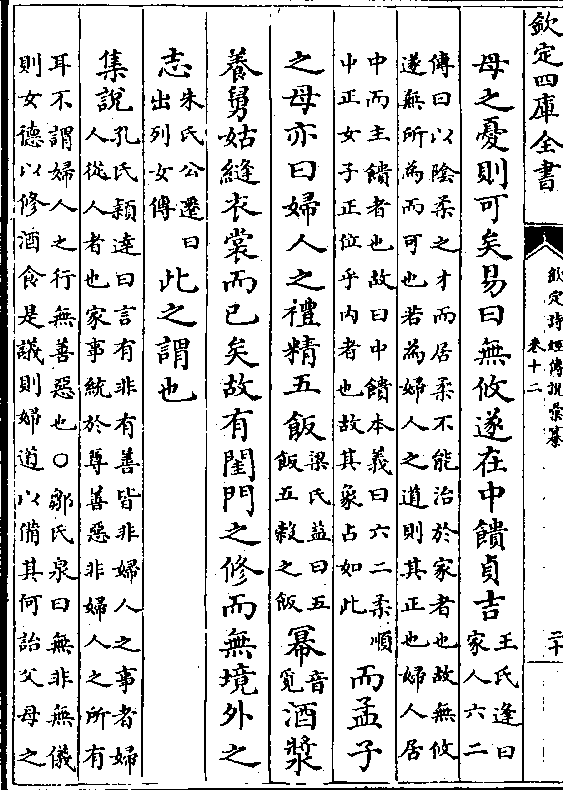 欽定四庫全書
欽定詩經傳說彙纂
卷十二
二十
母之憂則可矣易曰無攸遂在中饋貞吉王氏逢曰家人六二
傳曰以陰柔之才而居柔不能治於家者也故無攸
遂無所為而可也若為婦人之道則其正也婦人居
中而主饋者也故曰中饋本義曰六二柔順
中正女子正位乎內者也故其象占如此而孟子
之母亦曰婦人之禮精五飯梁氏益曰五飯五穀之飯冪音覓酒漿
養舅姑縫衣裳而已矣故有閨門之修而無境外之
志朱氏公遷曰出列女傳此之謂也
集說孔氏穎達曰言有非有善皆非婦人之事者婦
人從人者也家事統於尊善惡非婦人之所有
耳不謂婦人之行無善惡也○鄒氏泉曰無非無儀
則女德以修酒食是議則婦道以備其何詒父母之